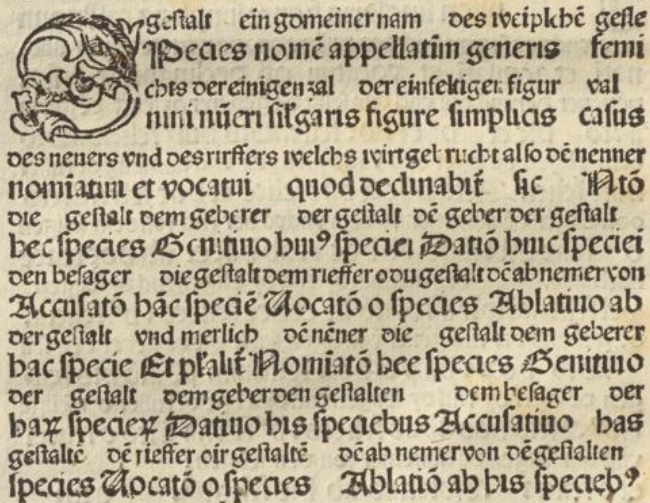 gestalt ein gomeiner nam des weiplichē gesle
SPecies nomē appellatiuū generis femi
chts der einigen zal der einfeltigen figur val
nini nūeri sīgularis figure simplicis casus
des neners vnd des rieffers welchs wirt gebrucht also dē nenner
nomīatiui et vocatui quod declinabit̄ sic Ntō
die gestalt dem geberer der gestalt dē geber der gestalt
hec species Genitiuo huiꝰ speciei Datiō huic speciei
den besager die gestalt dem rieffer o du gestalt dē abnemer von
Accusatō hāc speciē Uocatō o species Ablatiuo ab
der gestalt vnd merlich dē nēner die gestalt dem geberer
hac specie Et płaliṫ Nomīatō hee species Genitiuo
der gestalt dem geber den gestalten dem besager der
haꝝ specieꝝ Datiuo his speciebus Accusatiuo has
gestaltē dē rieffer o ir gestaltē dē ab nemer von dē gestalten
species Uocatō o species Ablatiō ab his speciebꝰ